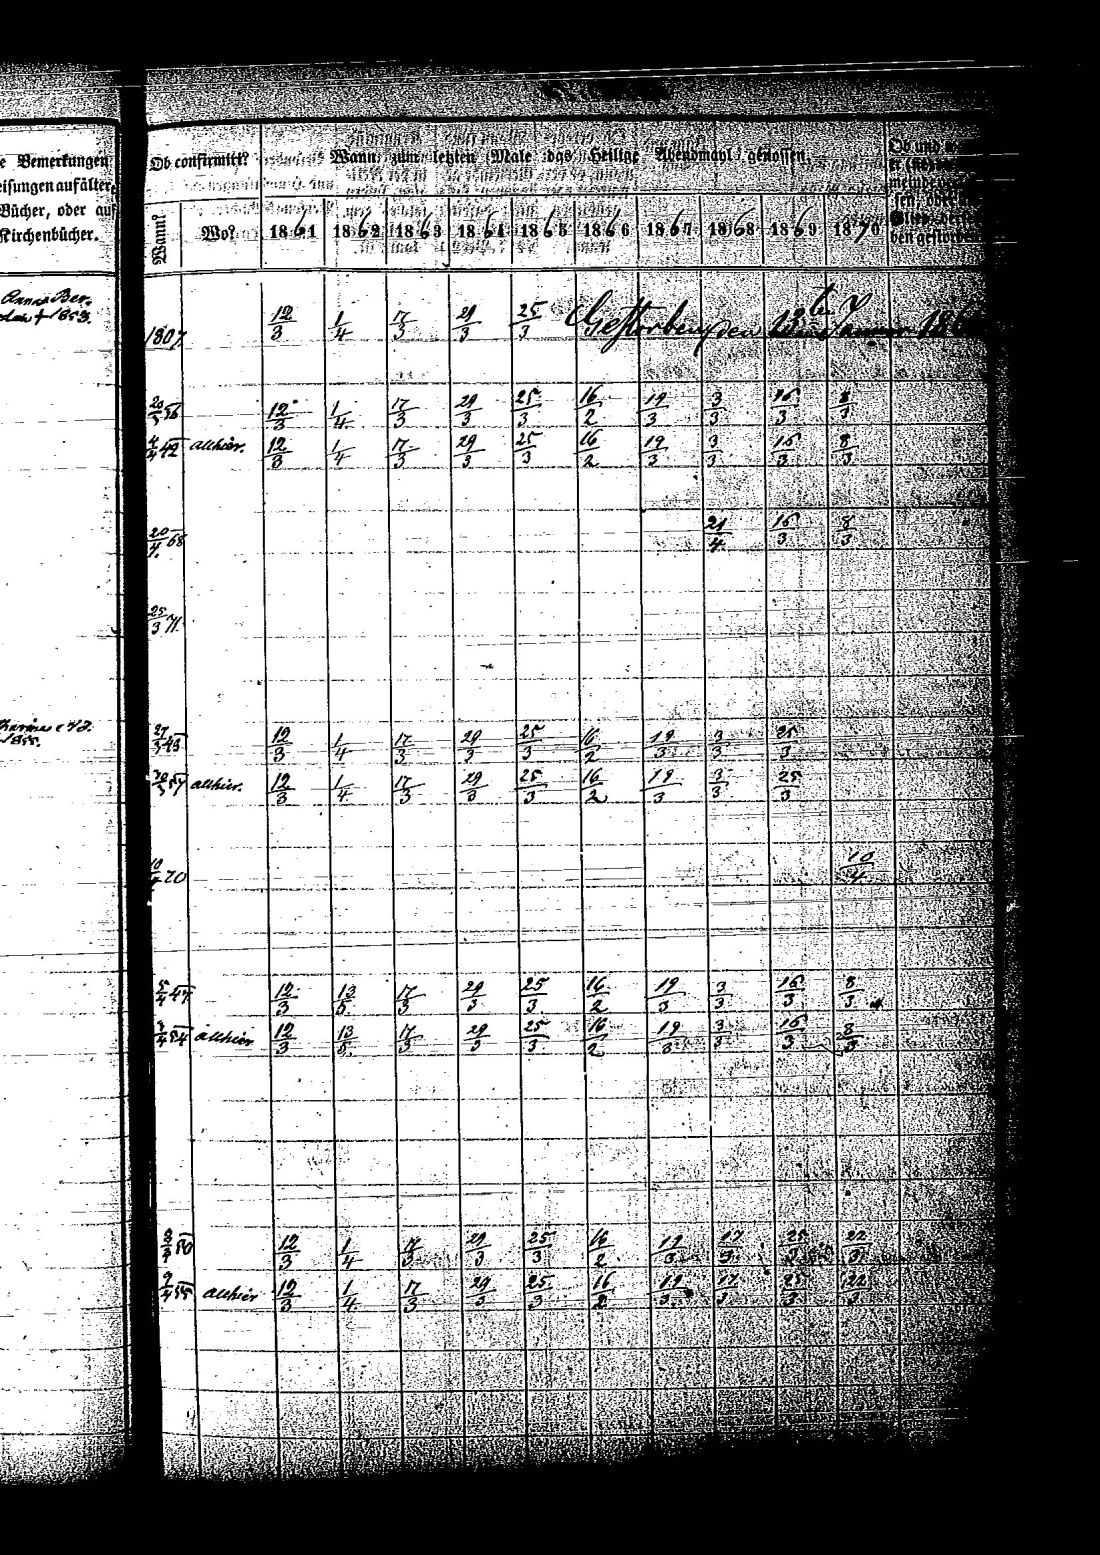 e Bemerkungen
eisungen auf ältere
Bücher, oder auf
Kirchenbücher.
Ob confirmirt?
Wann zum letzten Male das Heilige Abendmahl genossen.
Ob und
Wann? Wo? 1861 1862 1863 1864 1865 1866 1867 1868 1869 1870
ben gestorben
Anna Ber.
† 1853.
1807 12/3 1/4 17/3 29/3 25/3 Gestorben den 13ten Januar 186
20/3 56 12/3 1/4 17/3 29/3 25/3 16/2 19/3 3/3 16/3 8/3
4/4 42 allhier. 12/3 1/4 17/3 29/3 25/3 16/2 19/3 3/3 16/3 8/3
20/4 68 21/4 16/3 8/3
25/3 71.
1855.
27/3 43 12/3 1/4 17/3 29/3 25/3 16/2 19/3 3/3 25/3
30/3 57 allhier. 12/3 1/4 17/3 29/3 25/3 16/2 19/3 3/3 25/3
10/4 70 10/4
5/4 47 12/3 13/5 17/3 29/3 25/3 16/2 19/3 3/3 16/3 8/3
54 allhier 12/3 13/5. 17/3 29/3 25/3 16/2 19/3 3/3 16/3 8/3
50 12/3 1/4 17/3 29/3 25/3 16/2 19/3 17/3 25/3 22/3
55 allhier 12/3 1/4 17/3 29/3 25/3 16/2 19/3 17/3 25/3 22/3